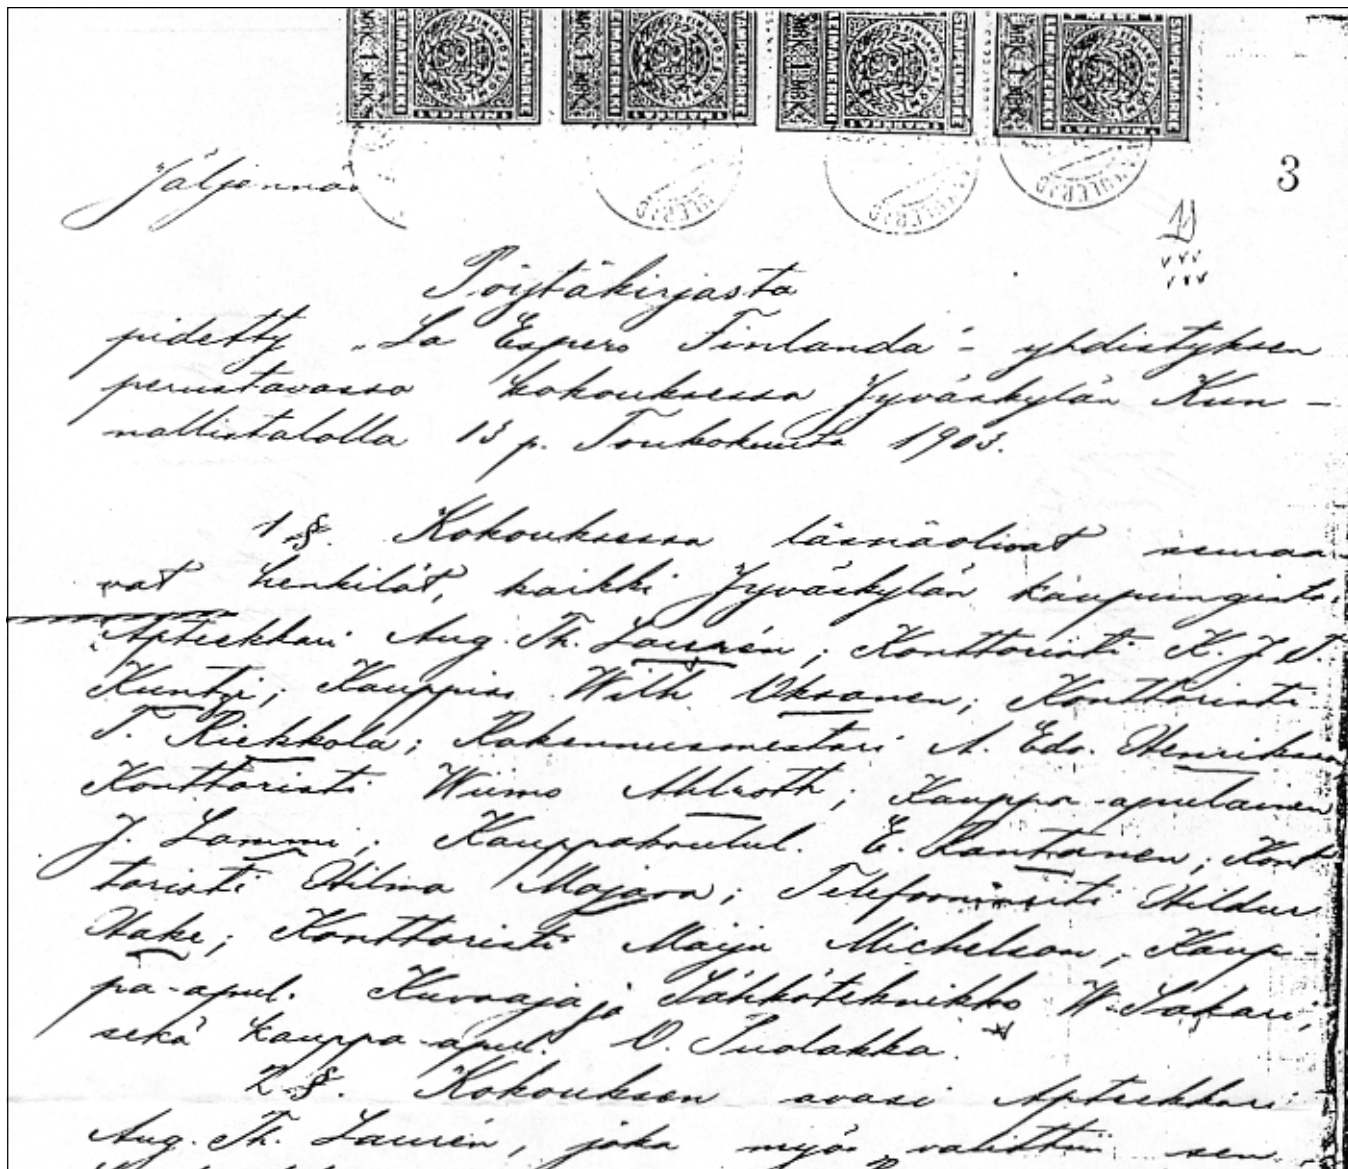 STÄMPELMÄRKE LEIMAMERKKI MRK 1 MRK 1 MARKKA
3
Jäljennös
Pöytäkirjasta
pidetty „La Espero Finlanda" - yhdistyksen
perustavassa kokouksessa Jyväskylän Kun-
nallistalolla 13 p. Toukokuuta 1903.
1 §. Kokouksessa läsnäolivat seuraa-
vat henkilöt, kaikki Jyväskylän kaupungista:
Apteekkari Aug. Th. Laurén; Konttoristi K. J. T.
Kuntzi; Kauppias Wilh Oksanen; Konttoristi
T. Riekkola; Rakennusmestari A. Edv. Henriksson
Konttoristi Wiimo Ahlroth; Kauppa-apulainen
J. Lammi; Kauppakoulul. E. Rantanen; Kont-
toristi Hilma Majava; Telefoonineiti Hildur
Hake; Konttoristi Maiju Michelson; Kaup-
pa-apul. Kuvaaja ja Sähköteknikko W. Sakari,
sekä kauppa-apul. O. Suolakka.
2 §. Kokouksen avasi Apteekkari
Aug. Th. Laurén, joka myös valittiin sen